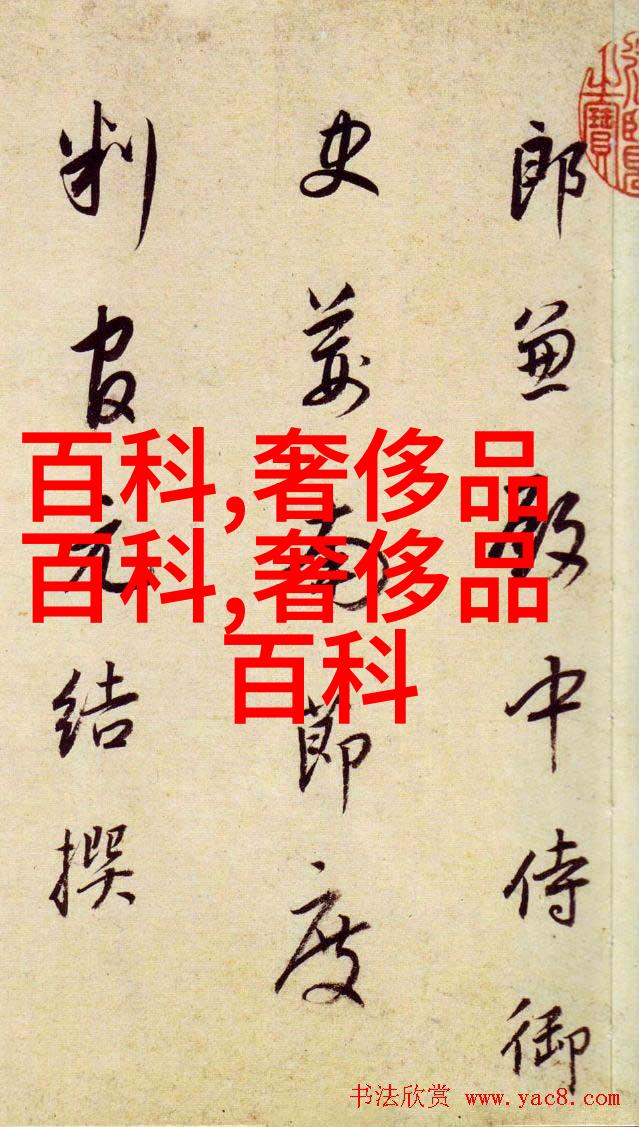 郎兼殿中侍御
史荊南節度
判官元結撰
百科,奢侈品
百科,奢侈品
百科
书法欣赏 www.yac8.com